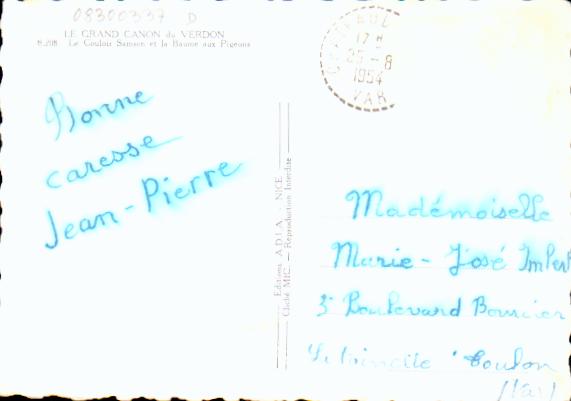 08300337 D
LE GRAND CANON du VERDON
8.208 Le Couloir Samson et la Baume aux Pigeons
Bonne
caresse
Jean-Pierre
Editions A.D.I.A. NICE
Cliché MIC. — Reproduction Interdite
17 H
25 - 8
1954
VAR
Madémoiselle
Marie-José
Boulevard
Toulon
(Var)